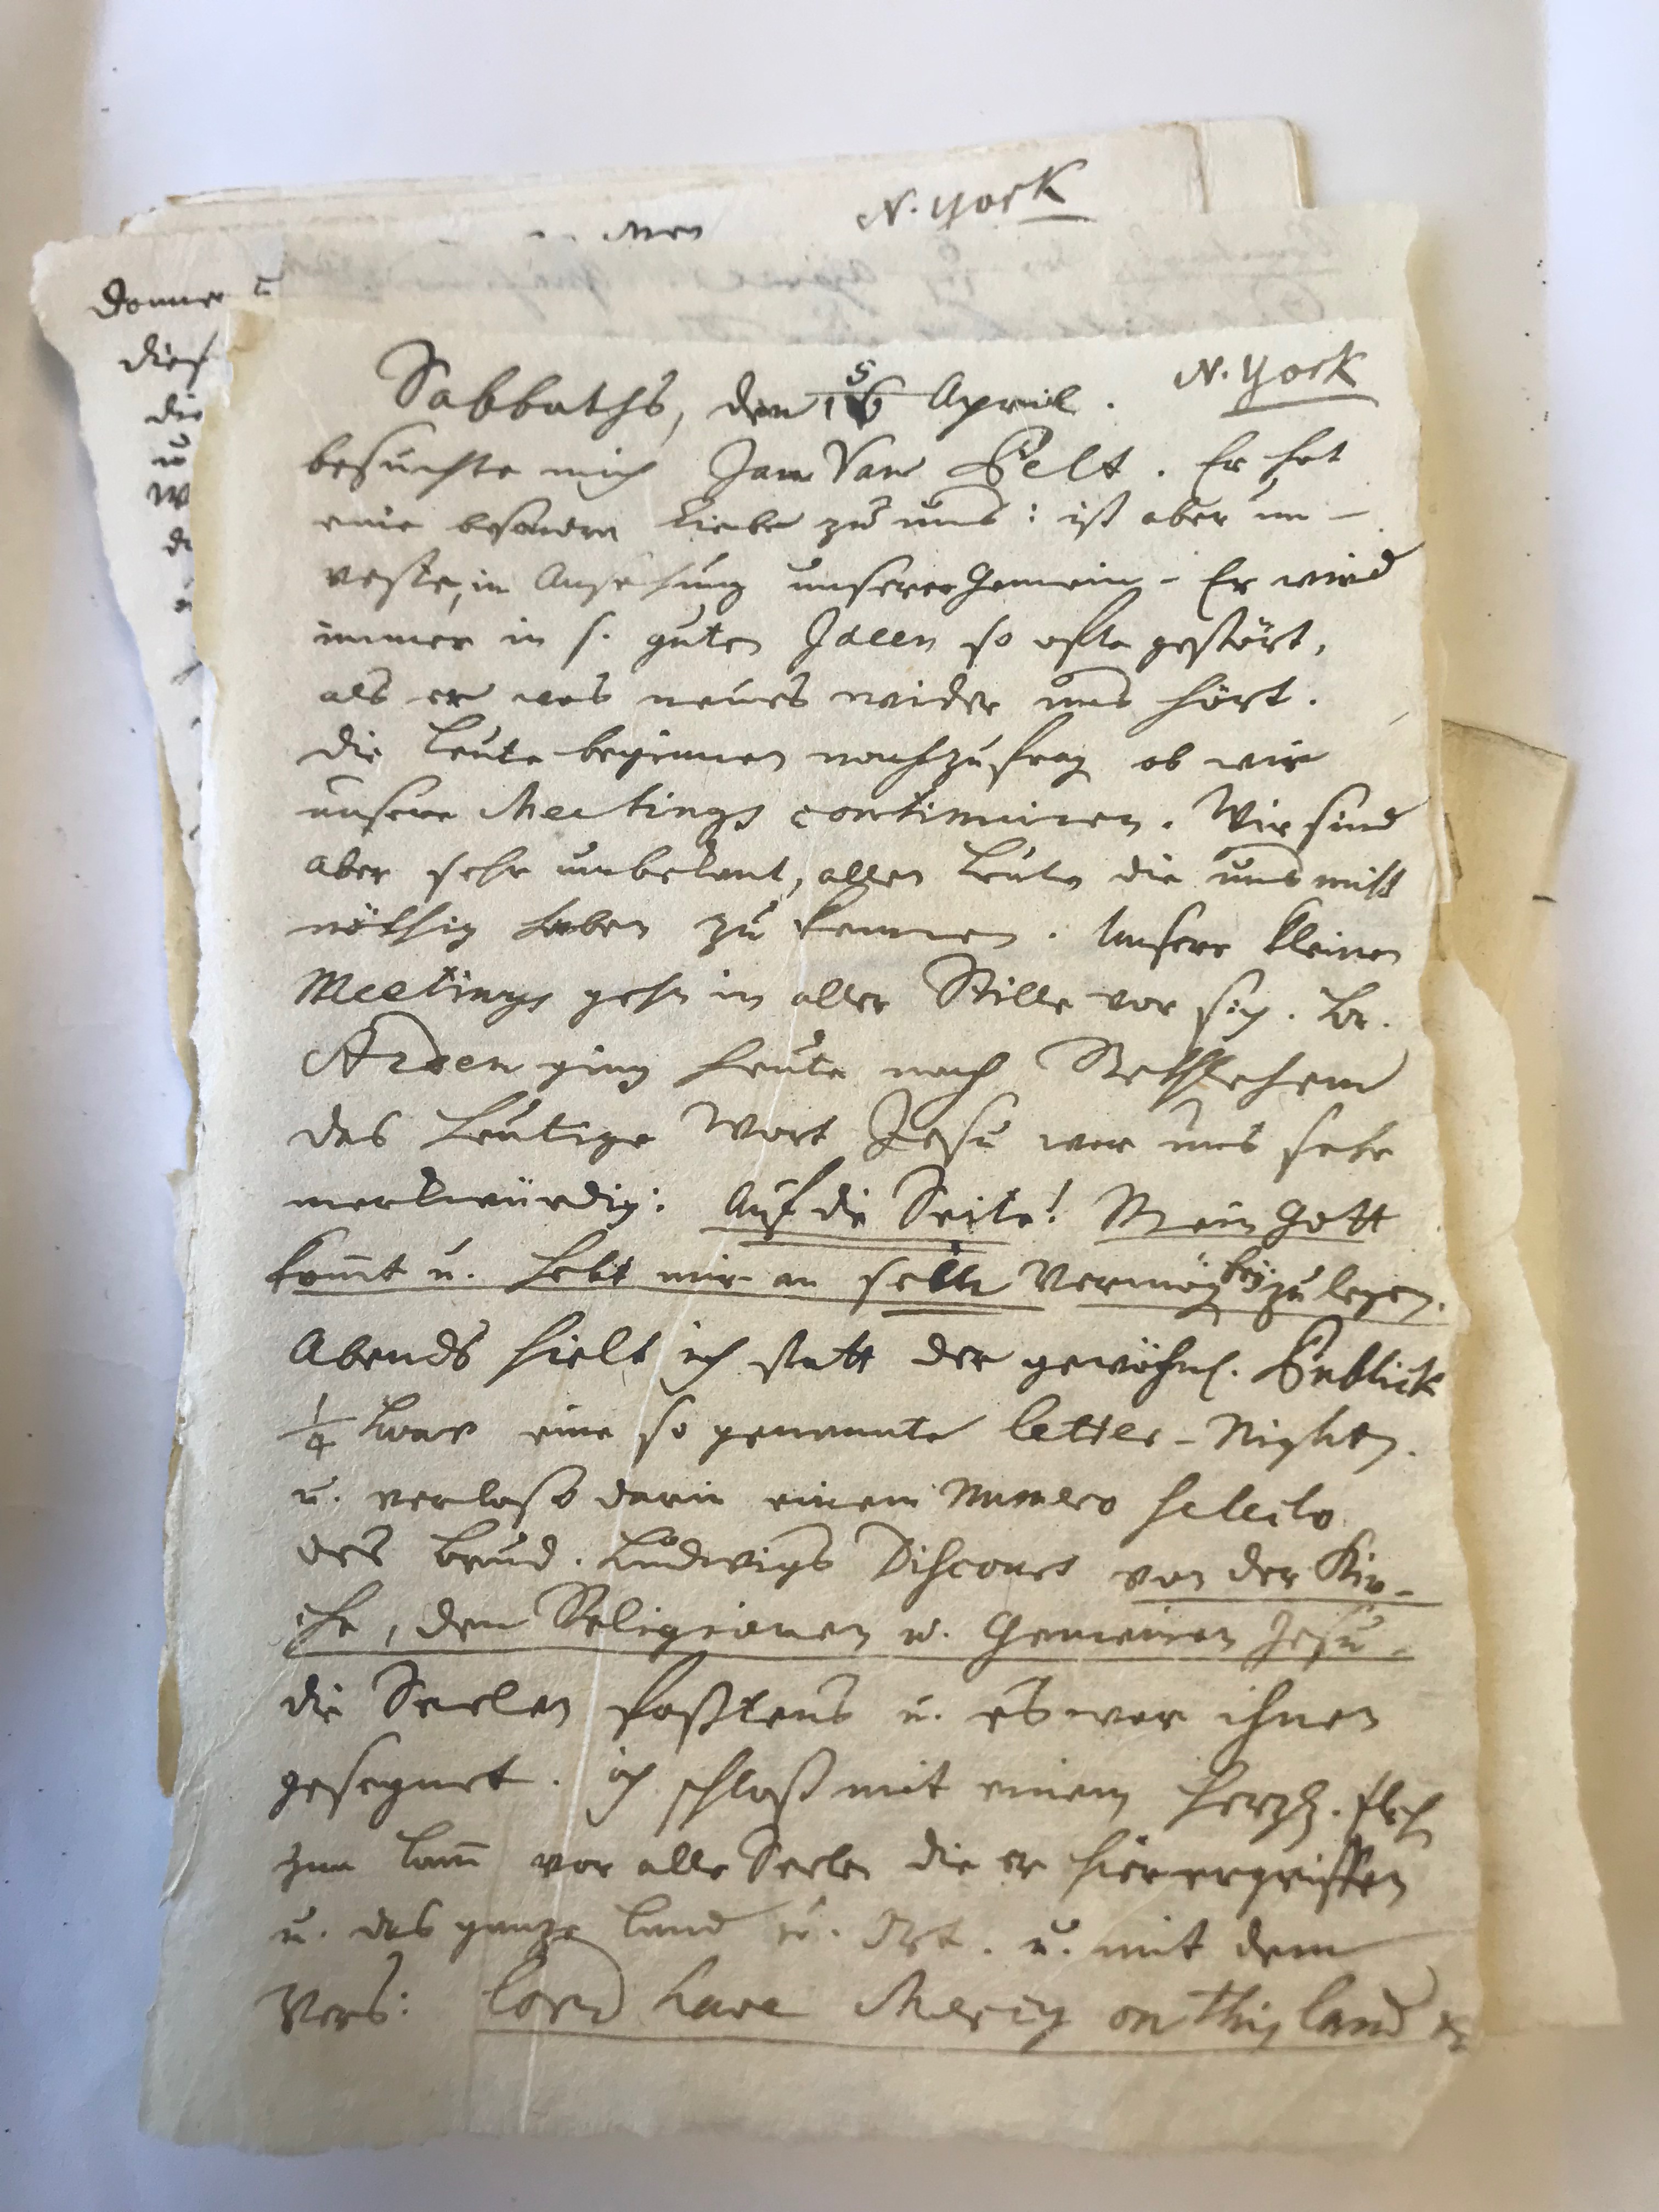 N. York
Donner
dies
die
u
N. York
Sabbaths, den 15 April.
besuchte mich Jan Van Pelt. Er hat
eine besondre Liebe zu uns: ist aber un-
veste, in Ansehung unserer Gemein - Er wird
immer in s. guten Ideen so offte gestört,
als er was neues wider uns hört.
die Leute beginnen nachzufrag ob wir
unsere Meetings continuiren. Wir sind
aber sehr unbekant, allen Leuten die uns nicht
nöthig haben zu kennen. Unsere kleinen
Meetings gehn in aller Stille vor sich. Br.
Arden ging heute nach Bethlehem
das heutige Wort Jesu war uns sehr
merkwürdig: Auf die Seite! Mein Gott
komt u. hebt mir an sein Vermög beyzulegen.
Abends hielt ich statt der gewöhnl. Publick
1/4 eine so genannte letter-Night
u. verlaß darin einem Numero selecto
des Brud. Ludwigs Discours von der Kir-
che, den Religionen u. Gemeinen Jesu.
die Seelen faßtens u. es war ihnen
gesegnet. ich schloß mit einem herzl.
zum Lam̄ vor alle Seelen die er hier ergriffen
u. das ganze Land u. Ort. u. mit dem
Vers: Lord have Mercy on this land